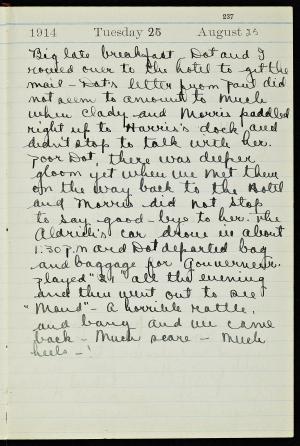 237
1914 Tuesday 25 August 25
Big late breakfast. Dot and I
rowed over to the hotel to get the
mail - Dot's letter from Paul did
not seem to amount to much
when Clady and Morris paddled
right up to Harris's dock and
didn't stop to talk with her.
Poor Dot, there was deeper
gloom yet when we met them
on the way back to the Hotel
and Morris did not stop
to say good-bye to her. The
Aldrich's car drove in about
1:30 P.M and Dot departed bag
and baggage for Gouverneur.
Played "31" all the evening
and then went out to see
"Maud" - A horrible rattle,
and bang and we came
back - Much scare - Much
heels - !